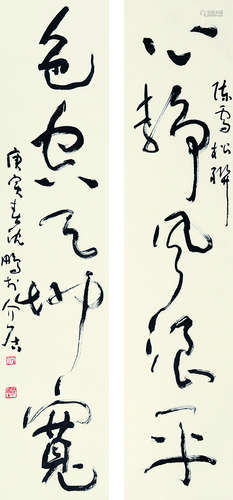 心静风浪平
陈雪松联
色空天地宽
庚寅春沈鹏于介居